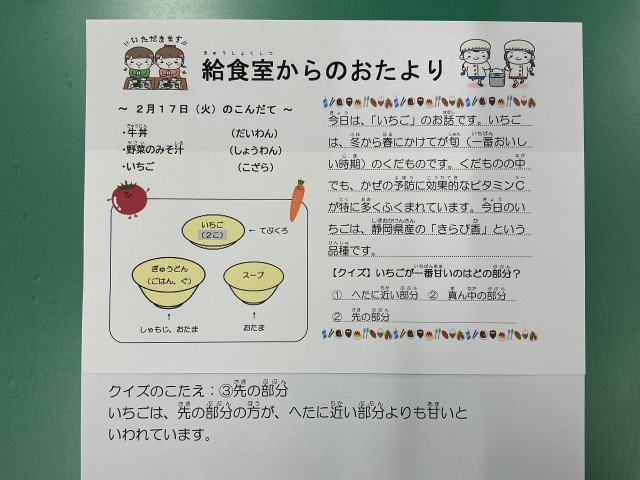 いただきます
給食室からのおたより
～ 2月17日（火）のこんだて ～
・牛丼 （だいわん）
・野菜のみそ汁 （しょうわん）
・いちご （こざら）
いちご
（2こ）
← てぶくろ
ぎゅうどん
（ごはん、ぐ）
スープ
↑
しゃもじ、おたま
↑
おたま
今日は、「いちご」のお話です。いちご
は、冬から春にかけてが旬（一番おいし
い時期）のくだものです。くだものの中
でも、かぜの予防に効果的なビタミンC
が特に多くふくまれています。今日のい
ちごは、静岡県産の「きらぴ香」という
品種です。
【クイズ】いちごが一番甘いのはどの部分？
① へたに近い部分 ② 真ん中の部分
② 先の部分
クイズのこたえ：③先の部分
いちごは、先の部分の方が、へたに近い部分よりも甘いと
いわれています。